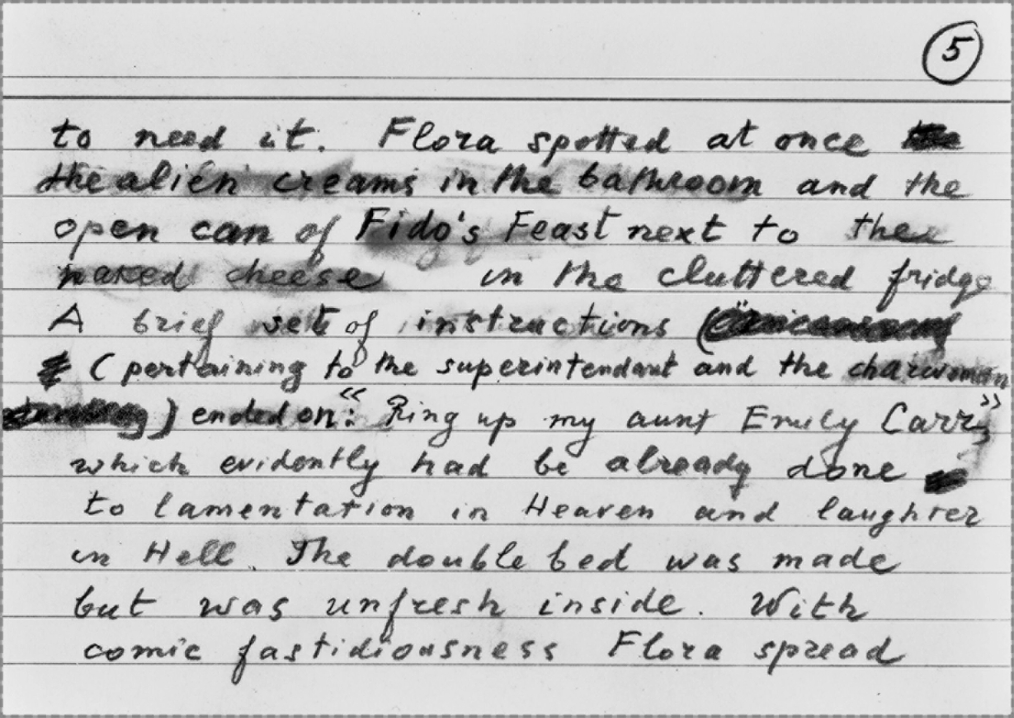 5
to need it. Flora spotted at once
the alien creams in the bathroom and the
open can of Fido's Feast next to the
naked cheese in the cluttered fridge
A brief set of instructions
(pertaining to the superintendant and the charwoman
) ended on: "Ring up my aunt Emily Carr,"
which evidently had be already done
to lamentation in Heaven and laughter
in Hell. The double bed was made
but was unfresh inside. With
comic fastidiousness Flora spread